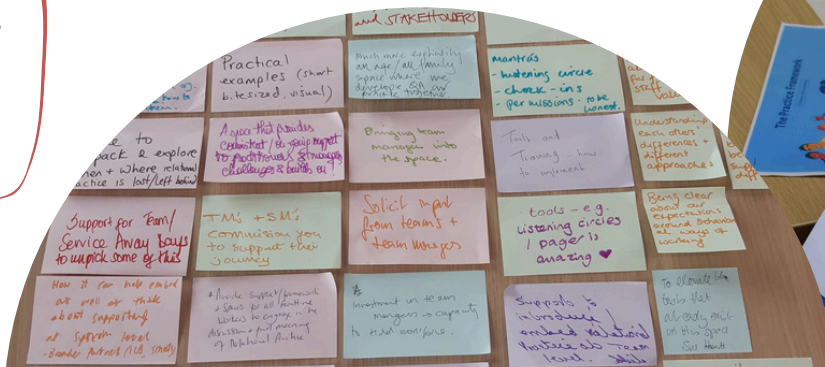 and STAKEHOLDERS
Practical
examples (short
bitesized, visual)
Much more explicitly
all age / all family
space where we
develope QA and
mantra's
- listening circle
- check-ins
- permissions - to be
honest.
to
pack & explore
+ where relational
practice is lost/left behind
A space that provides
consistent / group support
to practitioners & managers
challenges & builds on!
Bringing team
managers into
the space.
Tools and
Training - how
to implement
Understanding
each others
differences +
different
approaches
Support for Team/
Service Away Days
to unpick some of this
TM's + SM's
commission you
to support their
journey
Solicit input
from teams +
team managers
tools - e.g.
listening circles
/ pager is
amazing ♥
Being clear
about our
expectations
around behaviour
ways of
working
How it can help embed
as well as think
about supporting
at system level
- Broader Partners / ICB, schools
Provide support / framework
for all
to engage in the
discussion +
of Relational Practice
Investment in team
managers → capacity
to
Supports to
introduce /
embed relational
practice at Team
level.
To elevate the
tools that
already exist
in this space
The Practice Framework